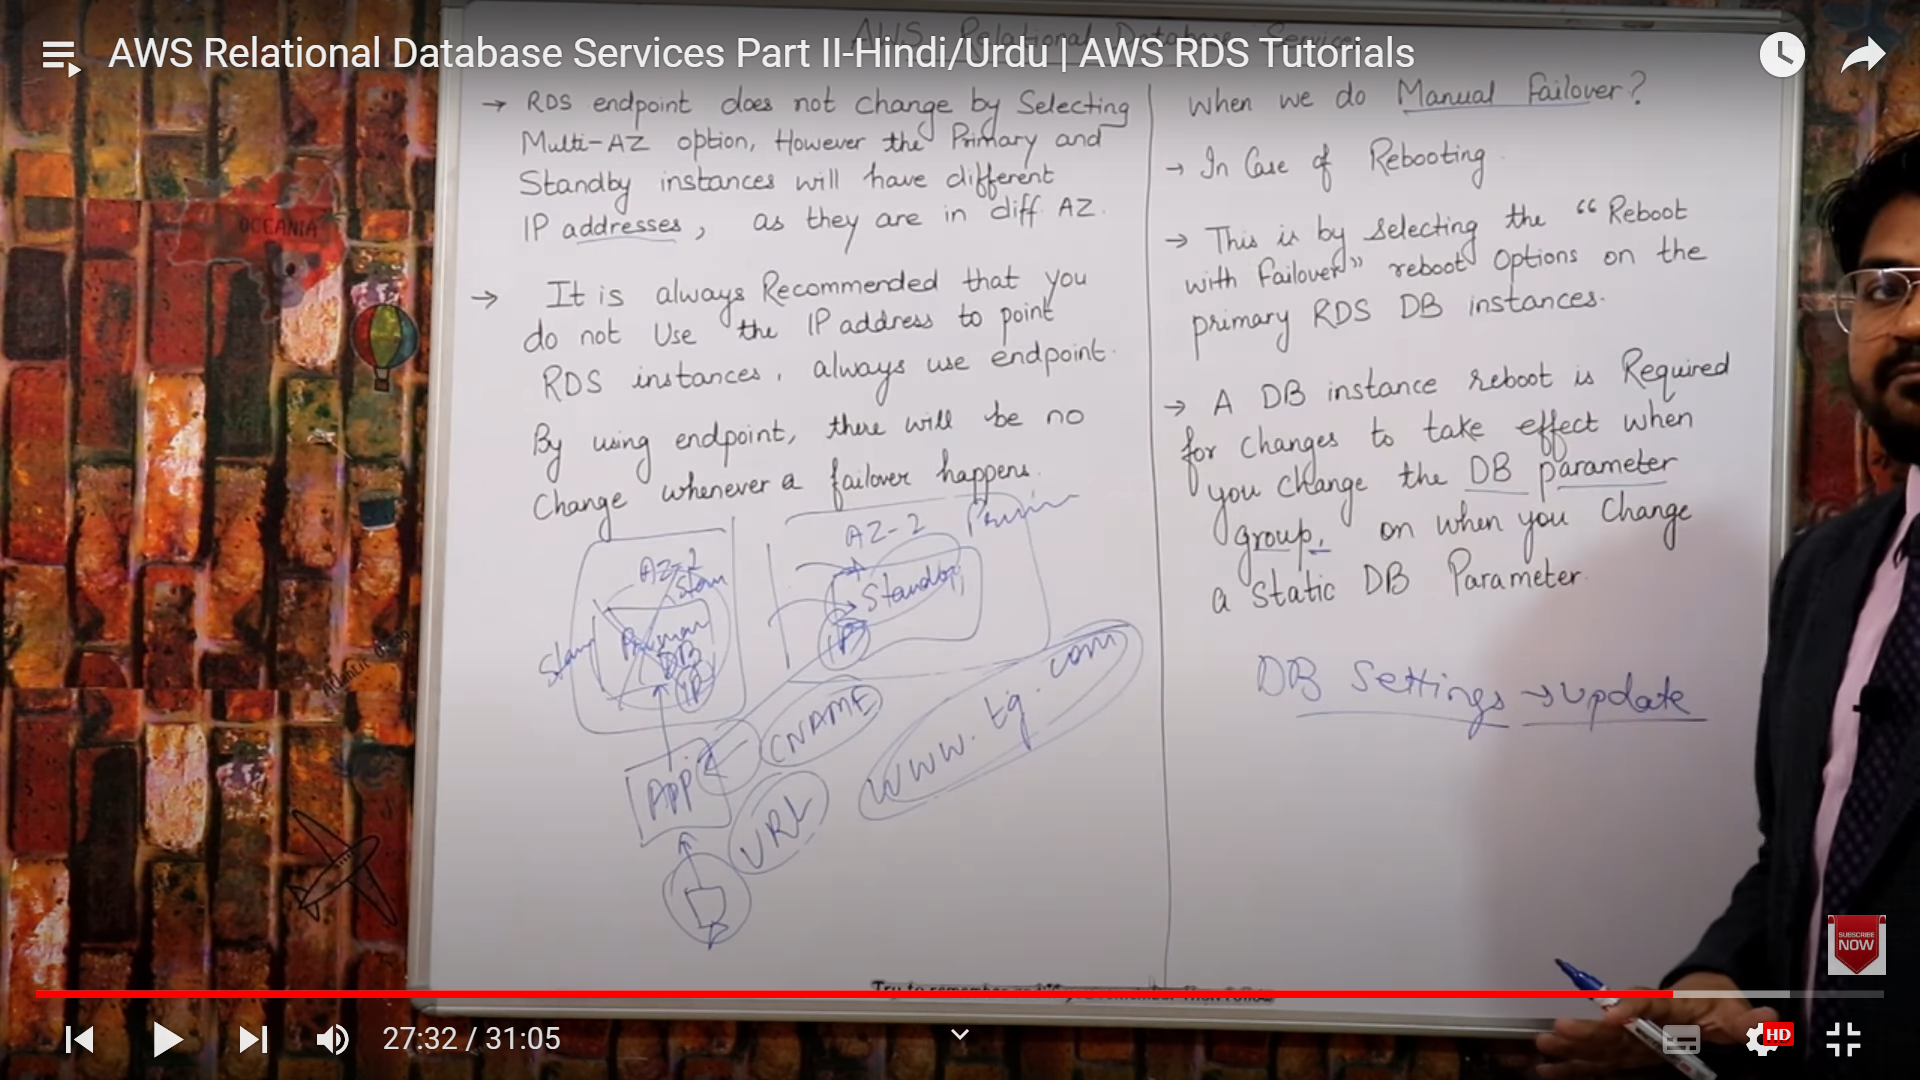 AWS Relational Database Services Part II-Hindi/Urdu | AWS RDS Tutorials
AWS Relational Database Service
→ RDS endpoint does not change by Selecting
Multi-AZ option, However the Primary and
Standby instances will have different
IP addresses, as they are in diff AZ.
→ It is always Recommended that you
do not Use the IP address to point
RDS instances, always use endpoint.
By using endpoint, there will be no
Change whenever a failover happens.
AZ-2
Stan
Stan
DB
IP
AZ-2
Standby
IP
App
CNAME
URL
www.tg.com
When we do Manual Failover?
→ In Case of Rebooting
→ This is by selecting the “Reboot
with Failover” reboot Options on the
primary RDS DB instances.
→ A DB instance reboot is Required
for changes to take effect when
you change the DB parameter
group, on when you Change
a Static DB Parameter.
DB Settings → update
OCEANIA
SUBSCRIBE
NOW
27:32 / 31:05
HD